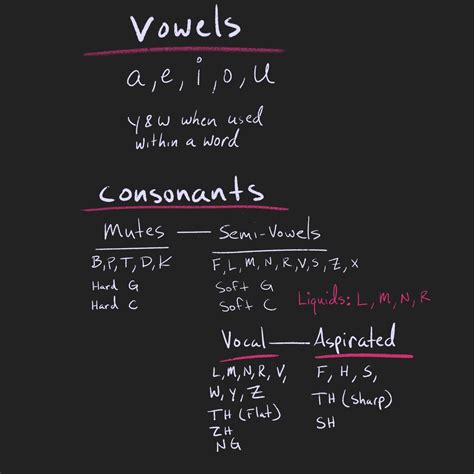 Vowels
a, e, i, o, u
Y&W when used
within a word
Consonants
Mutes — Semi-Vowels
B, P, T, D, K
F, L, M, N, R, V, S, Z, X
Hard G
Soft G
Hard C
Soft C
Liquids: L, M, N, R
Vocal — Aspirated
L, M, N, R, V,
F, H, S,
W, Y, Z
TH (Sharp)
TH (Flat)
SH
ZH
NG